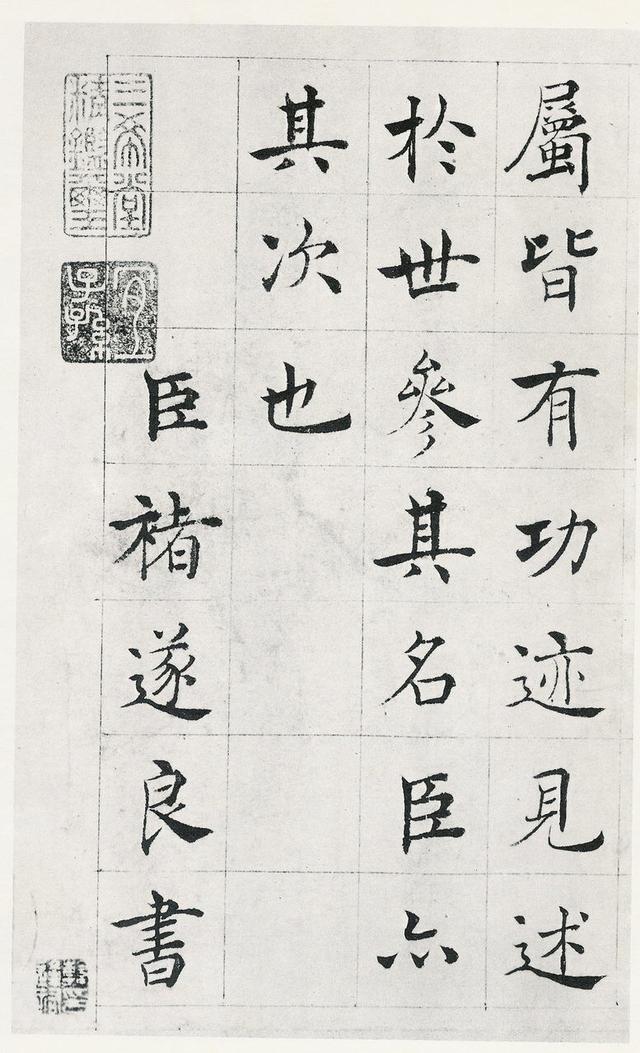 屬皆有功迹見述
於世參其名臣亦
其次也
臣褚遂良書
三希堂
精鑑璽
宜子孫